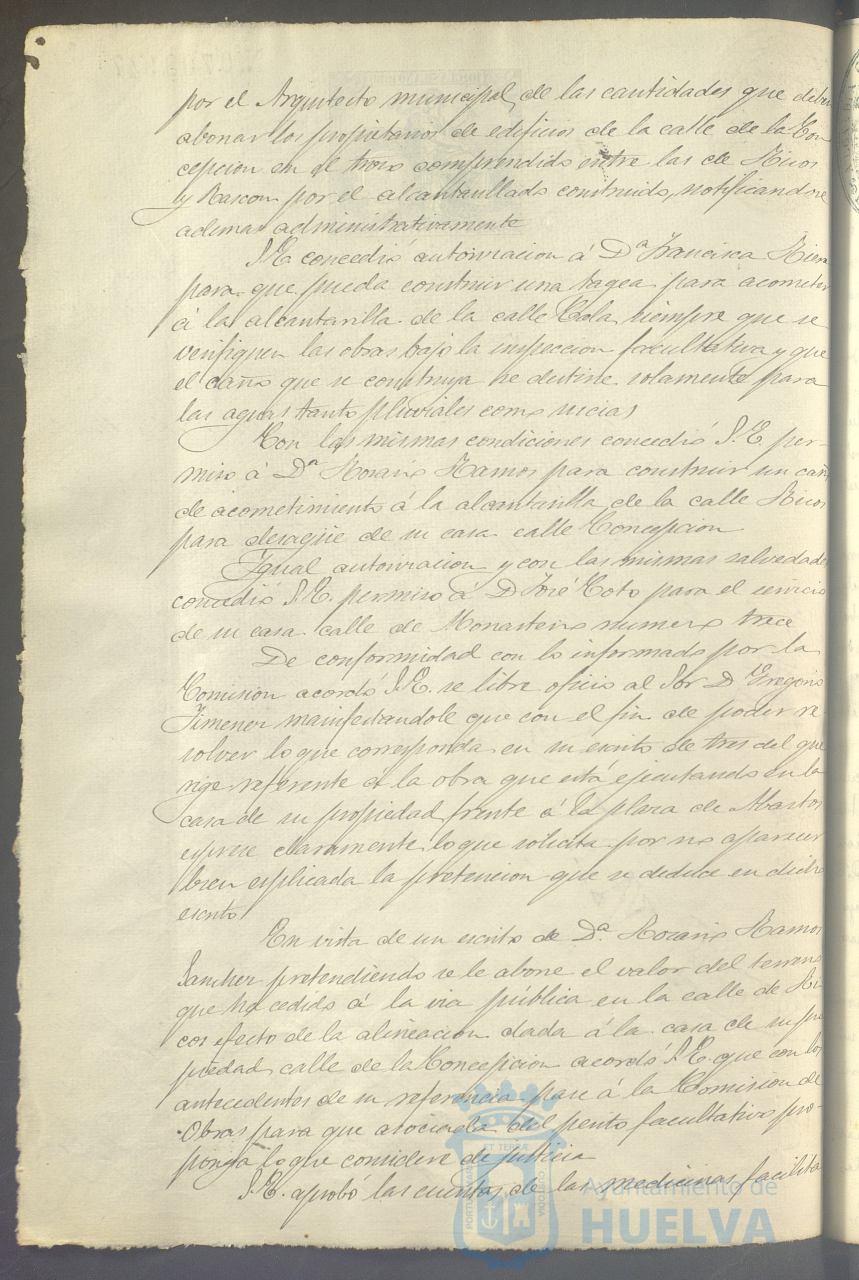 por el Arquitecto municipal, de las cantidades que deben
abonar los propietarios de edificios de la calle de la Con
cepcion en el trozo comprendido entre las de Ricos
y Rascon por el alcantarillado construido, notificandose
ademas administrativamente
S.E. concedió autorizacion á Dª Francisca Riera
para que pueda construir una tagea para acometer
á la alcantarilla de la calle Cola, siempre que se
verifiquen las obras bajo la inspeccion facultativa y que
el caño que se construya se destine solamente para
las aguas tanto pluviales como sucias
Con las mismas condiciones concedió S.E. per-
miso á Dª Rosario Ramos para construir un caño
de acometimiento á la alcantarilla de la calle Ricos
para desagüe de su casa calle Concepcion
Igual autorizacion y con las mismas salvedades
concedió S.E. permiso á D José Coto para el servicio
de su casa calle de Monasterio numero trece
De conformidad con lo informado por la
Comision acordó S.E. se libre oficio al Sor D Gregorio
Jimenez manifestandole que con el fin de poder re
solver lo que corresponda en su escrito de tres del que
rige referente á la obra que está ejecutando en la
casa de su propiedad frente á la plaza de Abastos
esprese claramente lo que solicita por no aparecer
bien esplicada la pretencion que se deduce en dicho
escrito
En vista de un escrito de Dª Rosario Ramos
Sanchez pretendiendo se le abone el valor del terreno
que ha cedido á la via pública en la calle de Ri
cos efecto de la alineacion dada á la casa de su pro
piedad calle de la Concepcion acordó S.E. que con los
antecedentes de su referencia pase á la Comision de
Obras para que asociada del perito facultativo pro-
ponga lo que considere de justicia
S.E. aprobó las cuentas de las medicinas facilita
ET TERRÆ
Ayuntamiento de
HUELVA